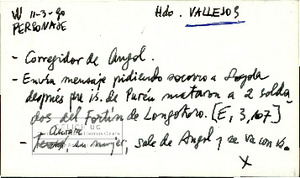 W 11-3-90 Hdo. VALLEJOS
PERSONAJE
- Corregidor de Angol.
- Envía mensaje pidiendo socorro a Loyola
después que is. de Purén mataron a 2 solda
dos del Fortín de Longotoro. [E, 3, 107]
- su mujer, sale de Angol y se va con
X